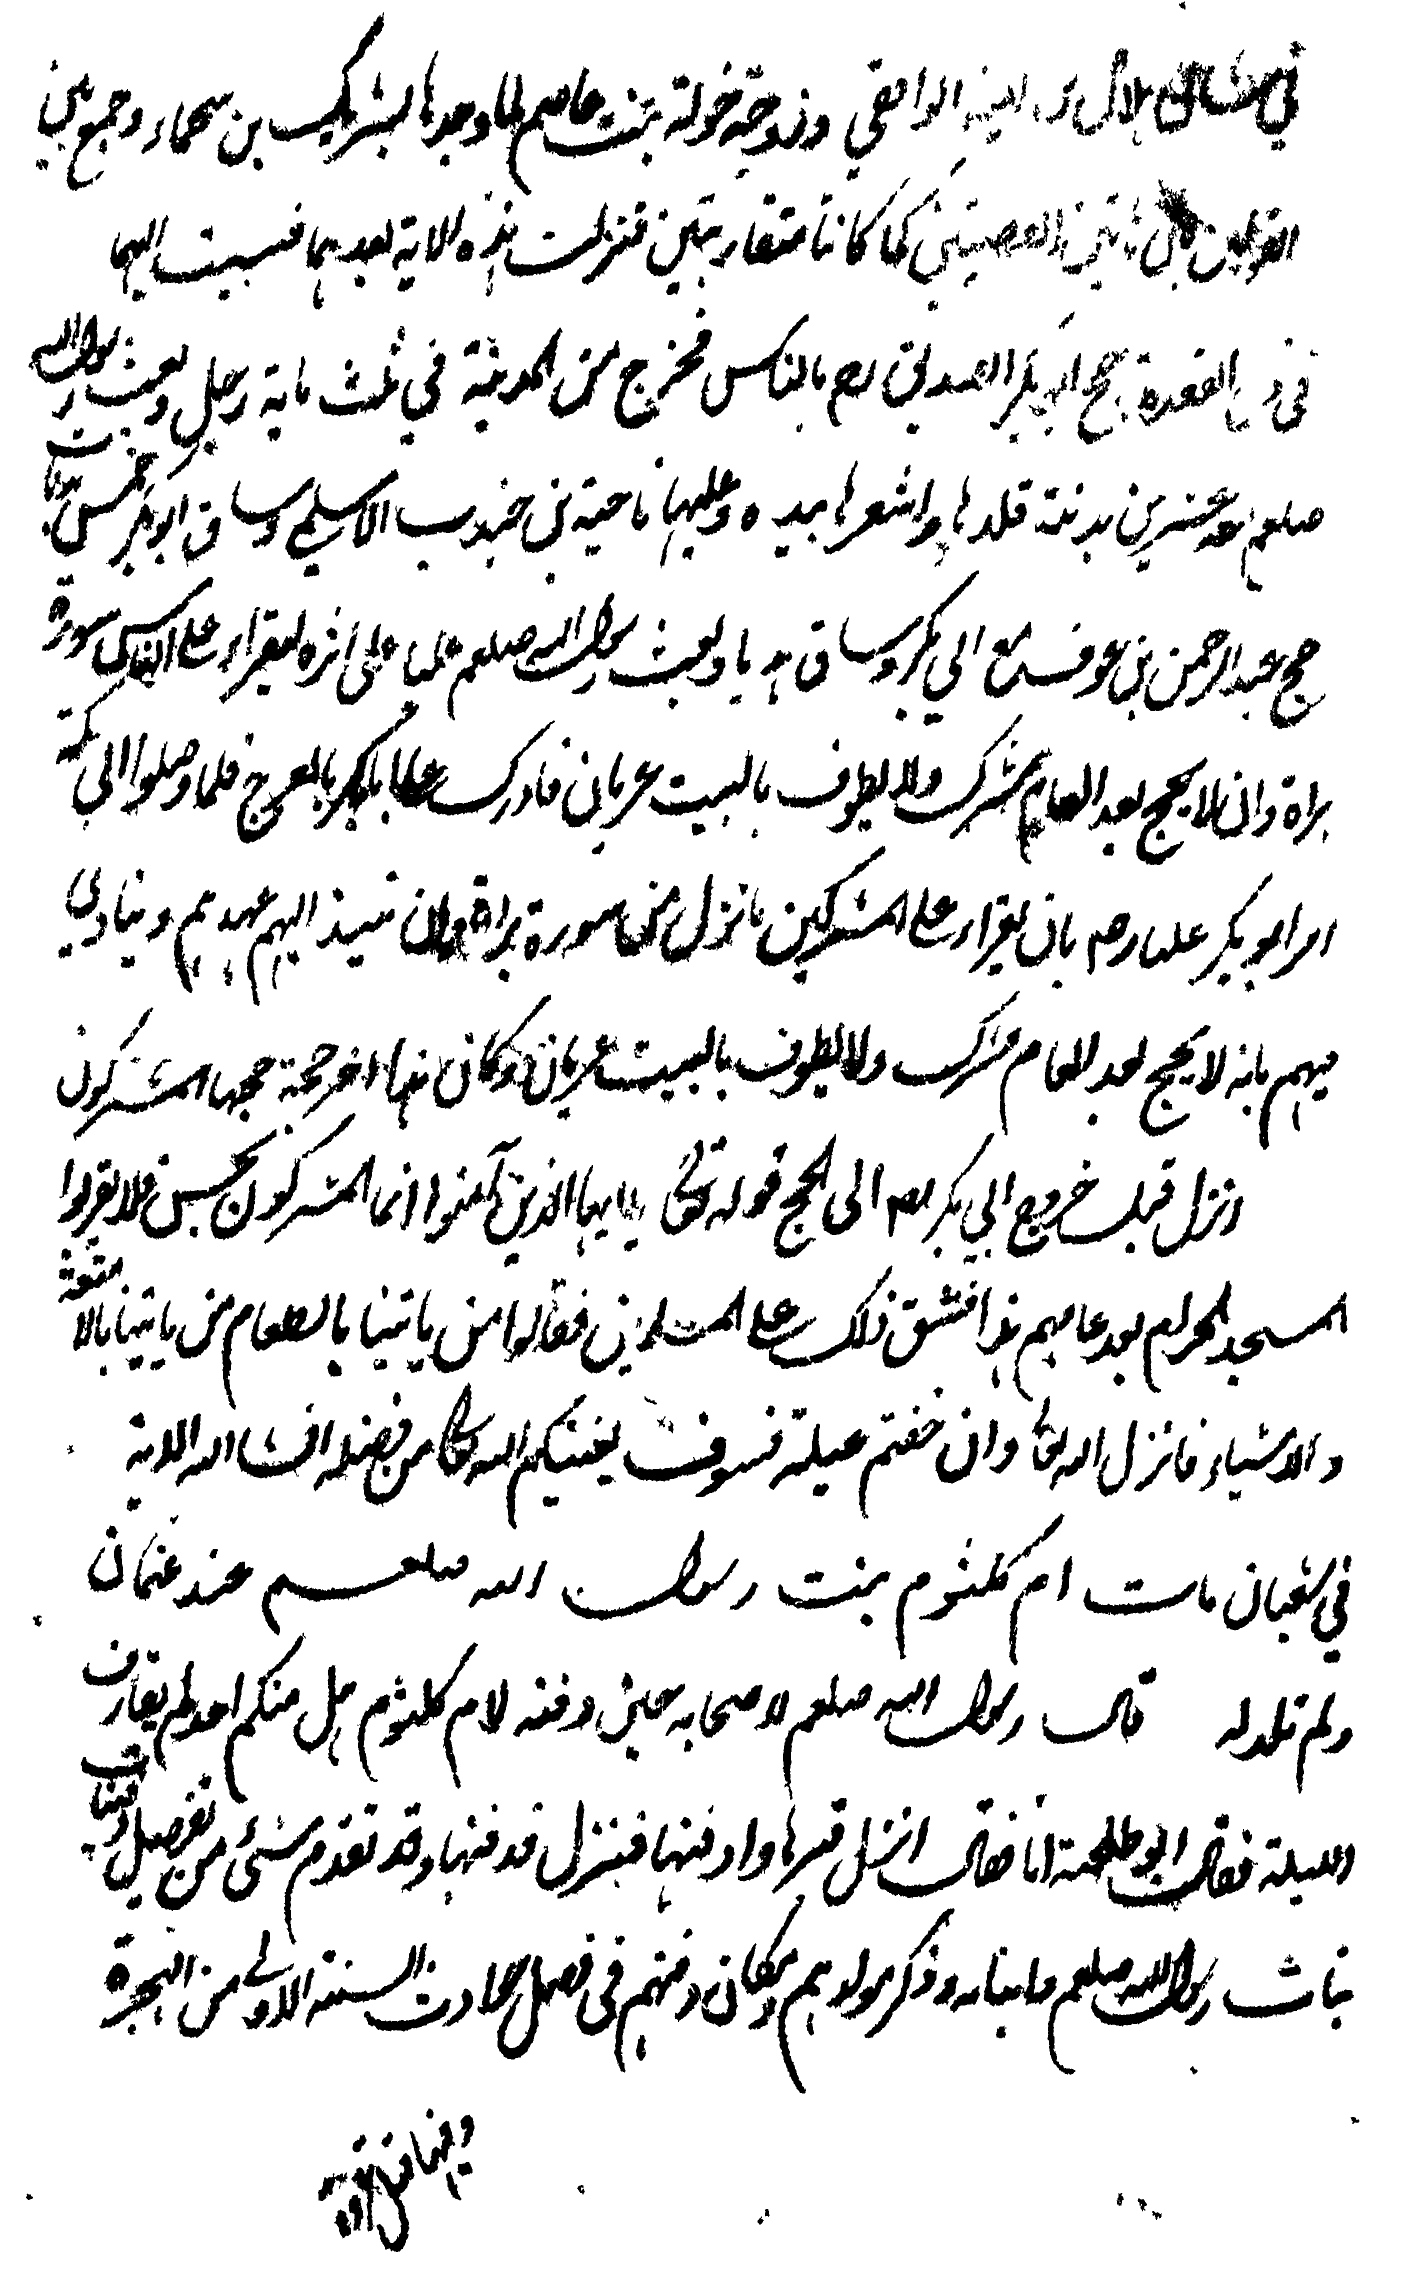 في شان هلال بن امية الواقفي وزوجته خولة بنت عاصم لما وجدها بشريك بن سحماء وجمع بين
القولين بان هاتين القصتين كما كانتا متقاربتين فنزلت هذه الاية بعدهما فنسبت اليهما
في ذي القعدة حج ابو بكر الصديق رضه بالناس فخرج من المدينة في ثلث ماية رجل وبعث رسول الله
صلعم معه عشرين بدنة قلدها واشعرها بيده وعليها ناجية بن جندب الاسلمي وساق ابو بكر خمس بدنات
حج عبد الرحمن بن عوف مع ابي بكر وساق هديا وبعث رسول الله صلعم عليا على اثره ليقراء على الناس سورة
براة وان لا يحج بعد العام مشرك ولا يطوف بالبيت عريان فادرك علي ابا بكر بالعرج فلما وصلوا الى مكة
امر ابو بكر عليا رضه بان يقراء على المشركين ما نزل من سورة براة وان ينبذ اليهم عهدهم وينادي
فيهم بانه لا يحج بعد العام مشرك ولا يطوف بالبيت عريان وكان هذا اخر حجة حجها المشركون
ونزل قبل خروج ابي بكر رضه الى الحج قوله تعالى يا ايها الذين آمنوا انما المشركون نجس فلا يقربوا
المسجد الحرام بعد عامهم هذا فشق ذلك على المسلمين فقالوا من ياتينا بالطعام من ياتينا بالامتعة
والاشياء فانزل الله تعالى وان خفتم عيلة فسوف يغنيكم الله تعالى من فضله ان شاء الله الاية
في شعبان ماتت ام كلثوم بنت رسول الله صلعم عند عثمان
ولم تلد له قال رسول الله صلعم لاصحابه حين دفنه لام كلثوم هل منكم احد لم يقارف
الليلة فقال ابو طلحة انا فقال انزل قبرها وادفنها فنزل فدفنها وقد تقدم شئ من تفصيل وفيات
بنات رسول الله صلعم وابنايه وذكر مولدهم ومكان دفنهم في فصل حوادث السنة الاولى من الهجرة